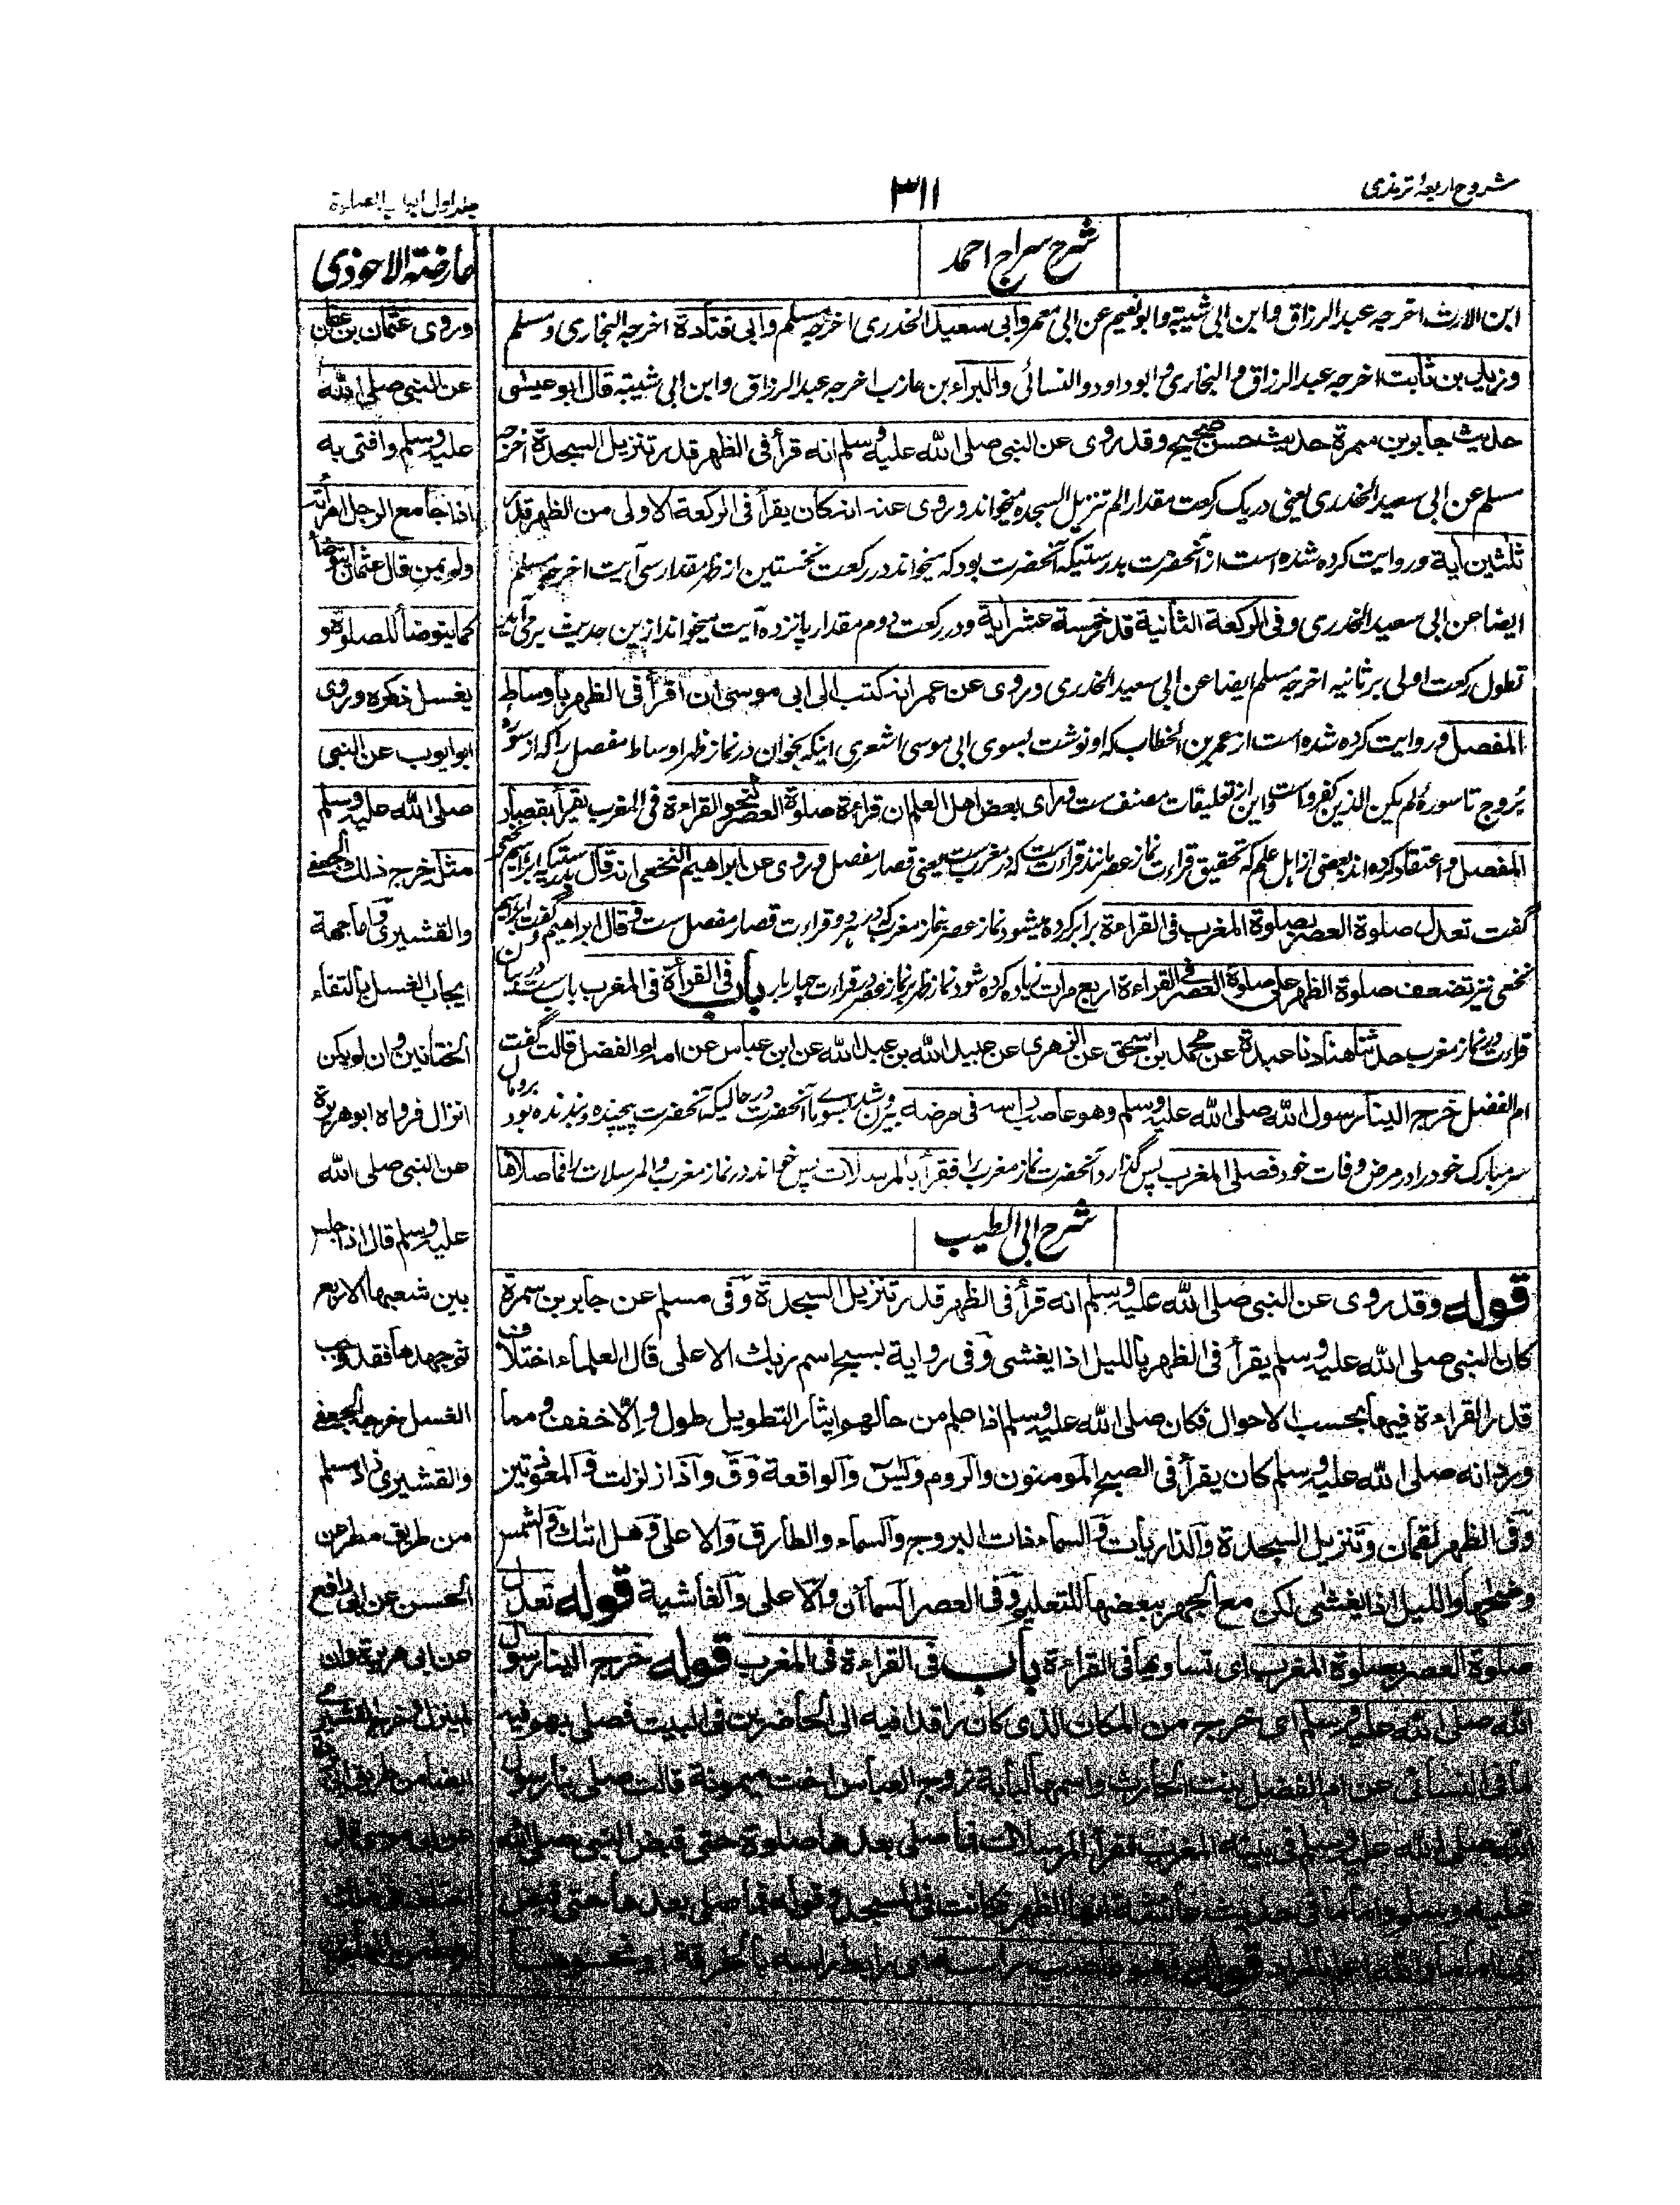 شروح اربعهٔ ترمذی
۳۱۱
جلد اول ابواب الصلوة
شرح سراج احمد
ابن الارث اخرجه عبد الرزاق وابن ابی شیبه وابو نعیم عن ابی معمر وابی سعید الخدری اخرجه مسلم وابی قتادة اخرجه البخاری ومسلم
وزید بن ثابت اخرجه عبد الرزاق والبخاری وابو داود والنسائی والبراء بن عازب اخرجه عبد الرزاق وابن ابی شیبة قال ابو عیسی
حدیث جابر بن سمرة حدیث حسن صحیح وقد روی عن النبی صلی الله علیه وسلم انه قرأ فی الظهر قدر تنزیل السجدة اخرجه
مسلم عن ابی سعید الخدری یعنی در یک رکعت مقدار الم تنزیل السجده میخواند وروی عنه انه کان یقرأ فی الرکعة الاولی من الظهر قدر
ثلثین آیة وروایت کرده شده است از آنحضرت بدرستیکه آنحضرت بود که میخواند در رکعت نخستین از ظهر مقدار سی آیت اخرجه مسلم
ایضا عن ابی سعید الخدری وفی الرکعة الثانیة قدر خمسة عشر آیة ودر رکعت دوم مقدار پانزده آیت میخواند ازین حدیث برمی آید
تطول رکعت اولی بر ثانیه اخرجه مسلم ایضا عن ابی سعید الخدری وروی عن عمر انه کتب الی ابی موسی ان اقرأ فی الظهر باوساط
المفصل وروایت کرده شده است از عمر بن الخطاب که او نوشت بسوی ابی موسی اشعری اینکه بخوان در نماز ظهر اوساط مفصل را که از سوره
بروج تا سورهٔ لم یکن الذین کفرواست واین از تعلیقات مصنف ست ورأی بعض اهل العلم ان قراءة صلوة العصر کنحو القراءة فی المغرب یقرأ بقصار
المفصل واعتقاد کرده اند بعضی از اهل علم که تحقیق قراءت نماز عصر مانند قراءت ست که در مغرب ست یعنی قصار مفصل وروی عن ابراهیم النخعی انه قال
گفت تعدل صلوة العصر بصلوة المغرب فی القراءة برابر کرده میشود نماز عصر بنماز مغرب که در هر دو قراءت قصار مفصل ست وقال ابراهیم وگفت ابراهیم
نخعی نیز تضعف صلوة الظهر علی صلوة العصر فی القراءة اربع مرات زیاده کرده شود نماز ظهر بر نماز عصر در قراءت چهار بار باب فی القرأة فی المغرب باب ست در بیان
قراءت در نماز مغرب حدثنا هناد نا عبدة عن محمد بن اسحق عن الزهری عن عبید الله بن عبد الله عن ابن عباس عن امه ام الفضل قالت گفت
ام الفضل خرج الینا رسول الله صلی الله علیه وسلم وهو عاصب راسه فی مرضه بیرون شد بسوی ما آنحضرت درحالیکه آنحضرت پیچنده وبندنده بود برومال
سر مبارک خود را در مرض وفات خود فصلی المغرب پس گذارد آنحضرت نماز مغرب را فقرأ بالمرسلات پس خواند در نماز مغرب والمرسلات را فما صلاها
شرح ابی الطیب
قوله وقد روی عن النبی صلی الله علیه وسلم انه قرأ فی الظهر قدر تنزیل السجدة وفی مسلم عن جابر بن سمرة
کان النبی صلی الله علیه وسلم یقرأ فی الظهر باللیل اذا یغشی وفی روایة بسبح اسم ربك الاعلی قال العلماء اختلاف
قدر القراءة فیها بحسب الاحوال فکان صلی الله علیه وسلم اذا علم من حالهم ایثار التطویل طول والا خفف ومما
ورد انه صلی الله علیه وسلم کان یقرأ فی الصبح المومنون والروم ویس والواقعة وق واذا زلزلت والمعوذتین
وفی الظهر لقمان وتنزیل السجدة والذاریات والسماء ذات البروج والسماء والطارق والاعلی وهل اتك والشمس
وضحیها واللیل اذا یغشی لکن مع الجهر ببعضها للتعلیم وفی العصر السماآن والاعلی والغاشیة قوله تعدل
صلوة العصر بصلوة المغرب ای تساویها فی القراءة باب فی القراءة فی المغرب قوله خرج الینا رسول
الله صلی الله علیه وسلم ای خرج من المکان الذی کان راقدا فیه الی الحاضرین فی البیت فصلی بهم
ما فی النسائی عن ام الفضل بنت الحارث واسمها لبابة زوج العباس اخت میمونة قالت صلی بنا رسول
الله صلی الله علیه وسلم فی بیته المغرب فقرأ المرسلات فما صلی بعدها صلوة حتی قبض النبی صلی الله
علیه وسلم واما ما فی حدیث عائشة انها الظهر فکانت فی المسجد وقوله فما صلی بعدها حتی قبض
قوله وهو عاصب راسه ای رابط راسه بالخرقة او نحوها
عارضة الاحوذی
وروی عثمان بن عفان
عن النبی صلی الله
علیه وسلم وافتی به
اذا جامع الرجل امرأته
ولم یمن قال عثمان یتوضأ
کما یتوضأ للصلوة هو
یغسل ذکره وروی
ابو ایوب عن النبی
صلی الله علیه وسلم
مثله خرج ذلك الجعفی
والقشیری واما جهة
ایجاب الغسل بالتقاء
الختانین وان لم یکن
انزال فرواه ابو هریرة
عن النبی صلی الله
علیه وسلم قال اذا جلس
بین شعبها الاربع
ثم جهدها فقد وجب
الغسل خرجه الجعفی
والقشیری زاد مسلم
من طریق مطر عن
الحسن عن ابی رافع
عن ابی هریرة وان
لم ینزل وخرج القشیری
ایضا من طریق ابی